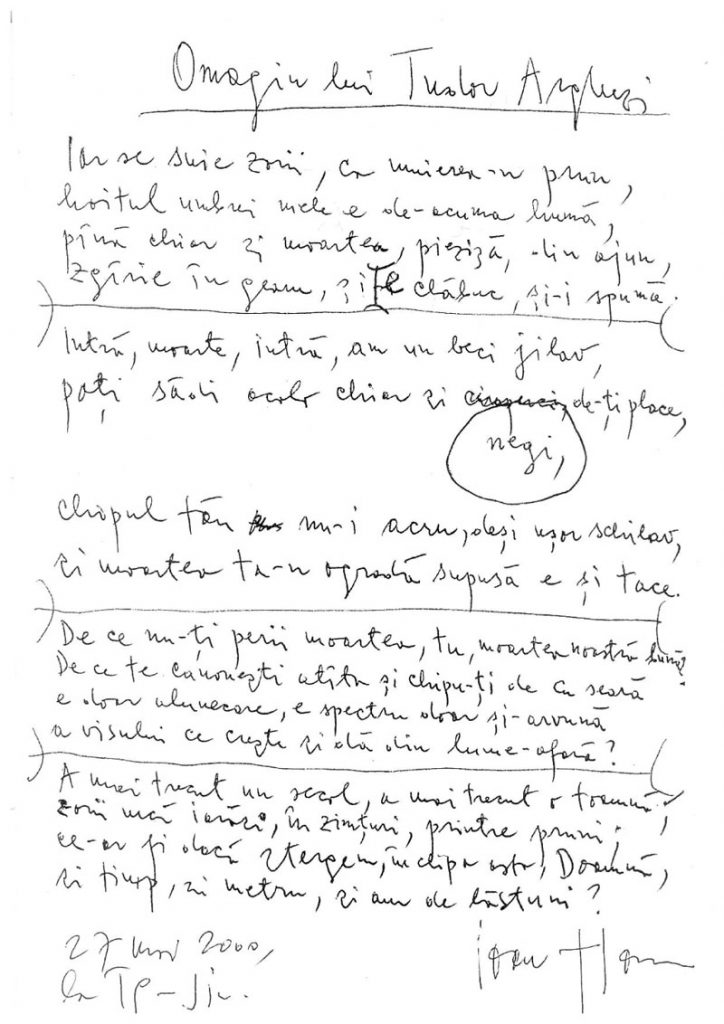 Omagiu lui Tudor Arghezi
Iar se suie zorii, ca mierea-n prun,
hoitul umbrei mele e de-acuma humă,
pînă chiar și moartea, piezișă, din ajun,
zgîrie în geam, și clăbuc, și-i spumă.
Intră, moarte, intră, am un beci jilav,
poți sădi acolo chiar și de-ți place,
negi,
chipul tău nu-i acru, deși ușor schilav,
și moartea ta-n ogradă supusă e și tace.
De ce nu-ți perii moartea, tu, moartea noastră bună?
De ce te canonești atîta și chipu-ți de cu seară
e doar alunecare, e spectru doar și-arvună
a visului ce crește și dă din lume-afară?
A mai trecut un secol, a mai trecut o toamnă,
zorii urcă iarăși, în zimțuri, printre pruni;
ce-ar fi dacă ștergem, în clipa asta, Doamnă,
și timp, și metru, și ani de lăstuni?
27 nov 2000,
la Tg-Jiu.